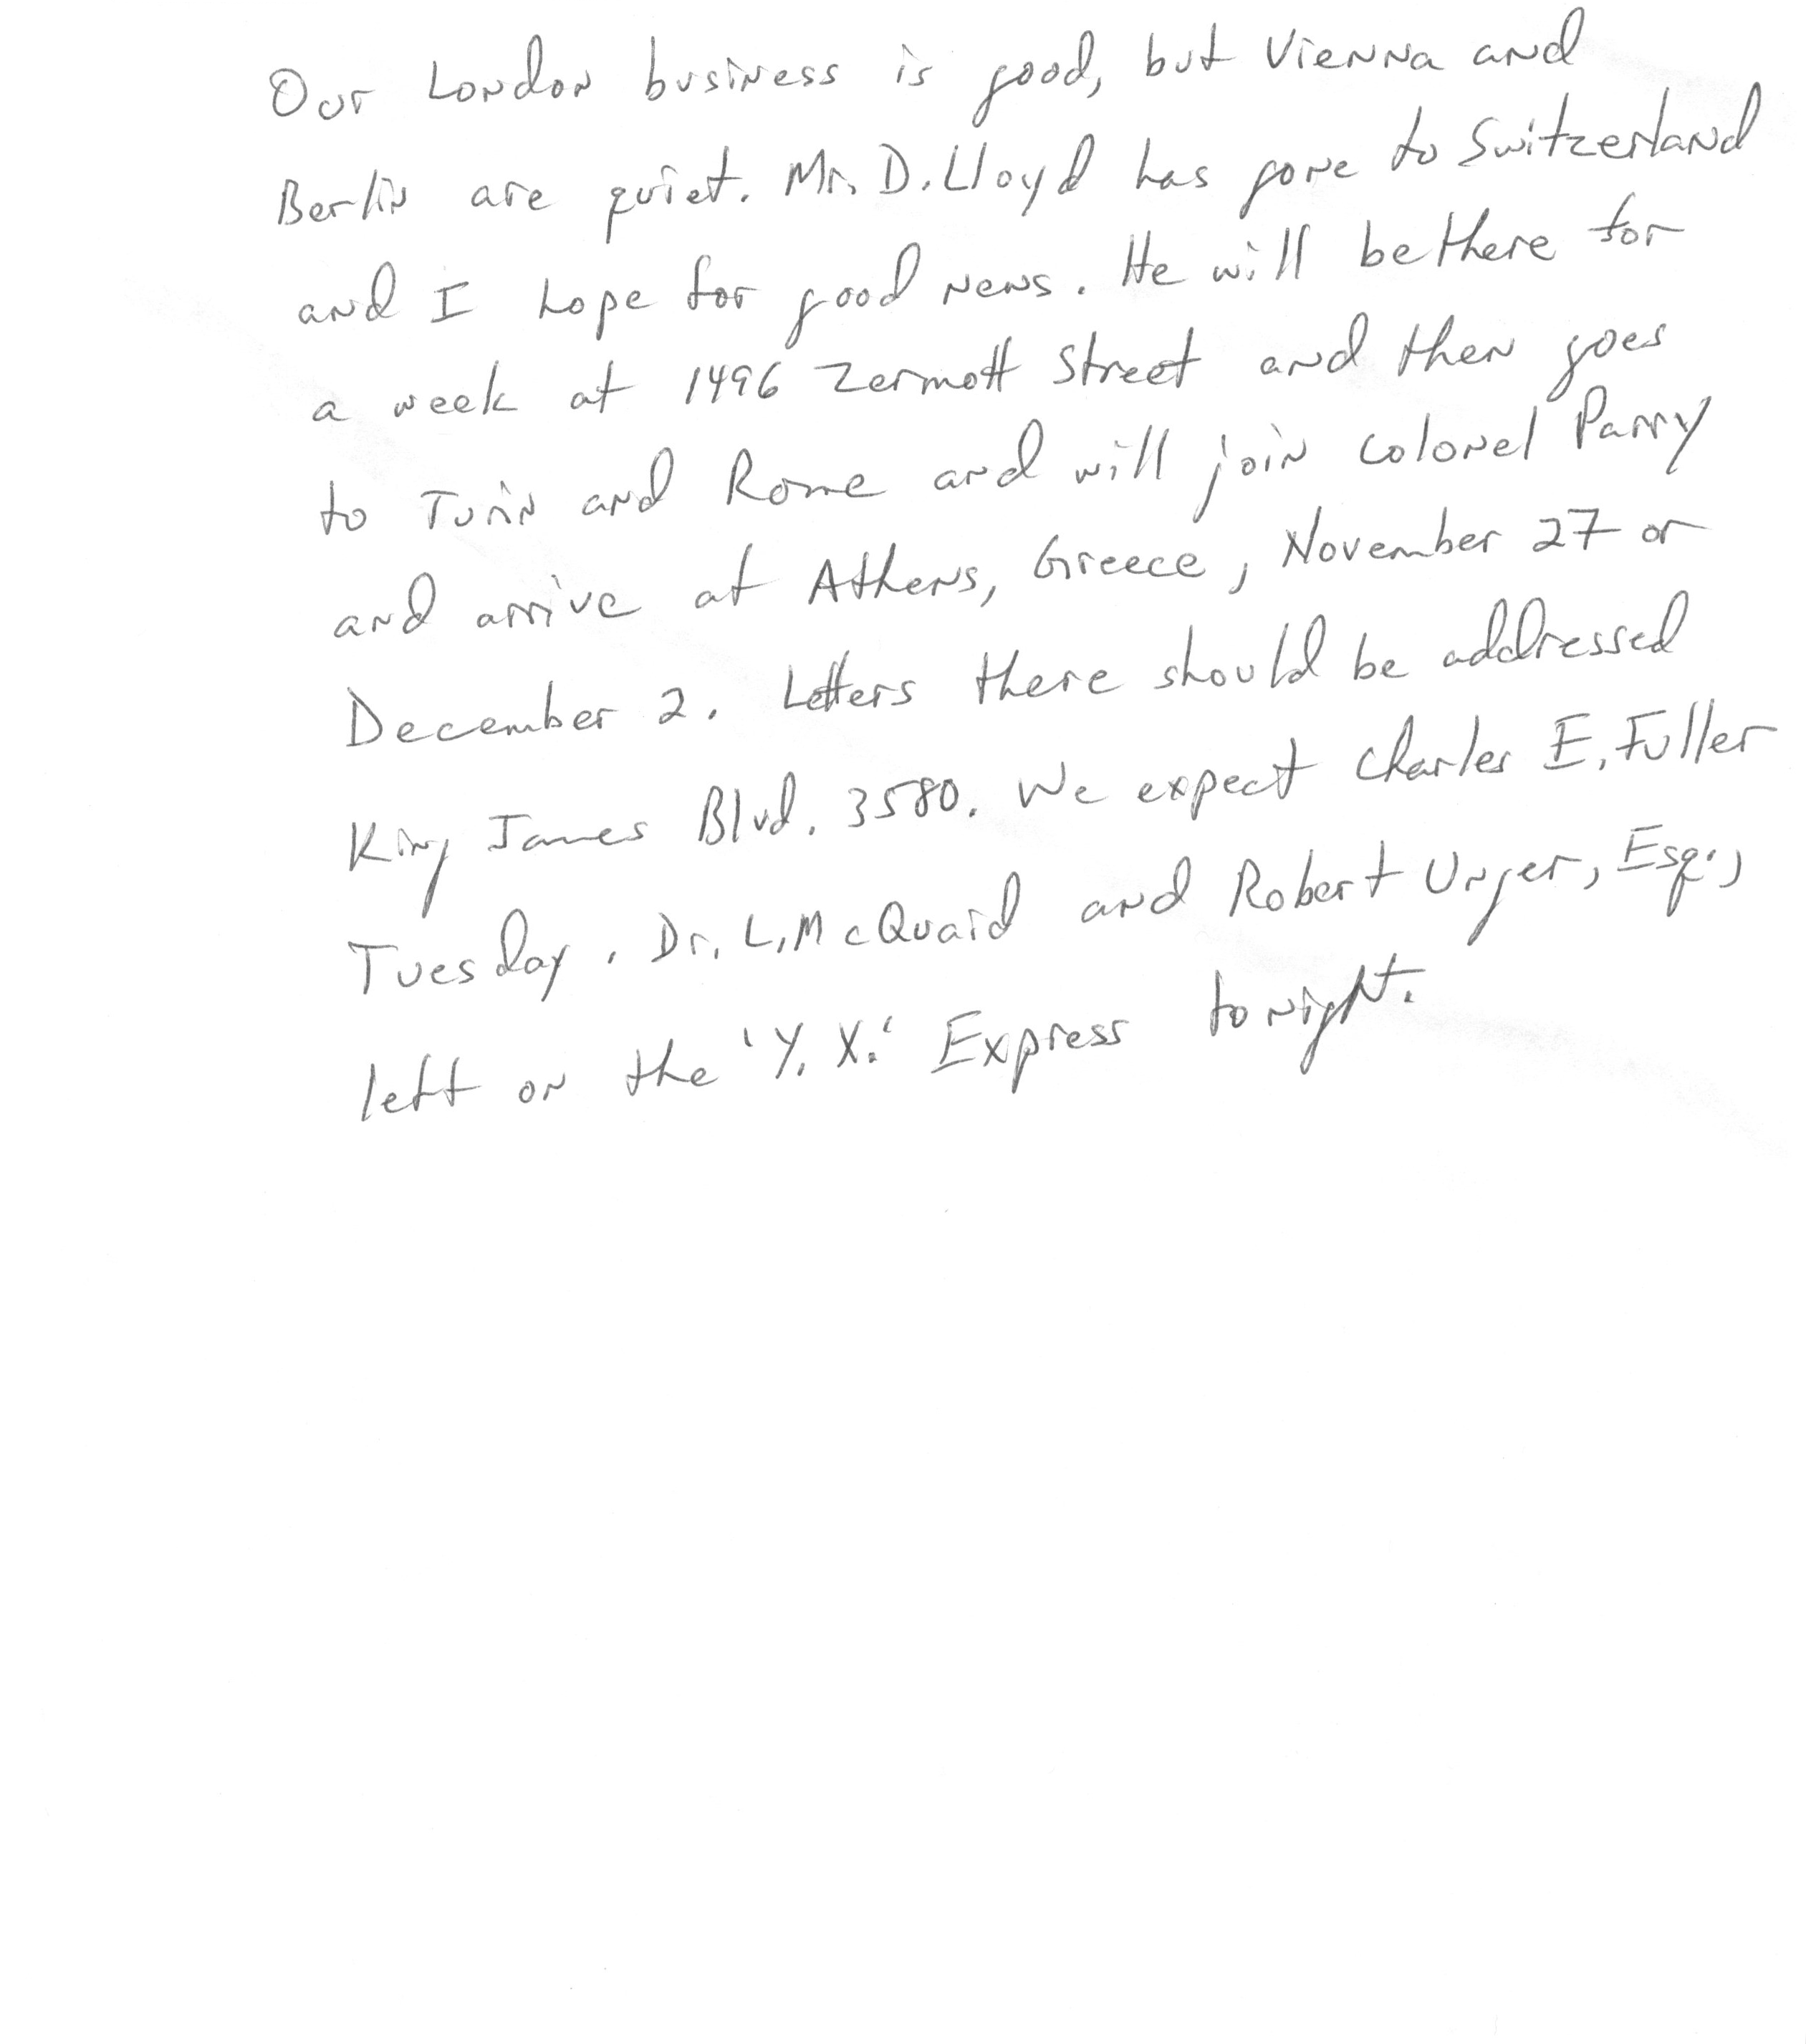 Our London business is good, but Vienna and
Berlin are quiet. Mr. D. Lloyd has gone to Switzerland
and I hope for good news. He will be there for
a week at 1496 Zermott Street and then goes
to Turin and Rome and will join Colonel Parry
and arrive at Athens, Greece, November 27 or
December 2. Letters there should be addressed
King James Blvd. 3580. We expect Charles E. Fuller
Tuesday. Dr. L. McQuaid and Robert Unger, Esq.,
left on the 'Y. X.' Express tonight.